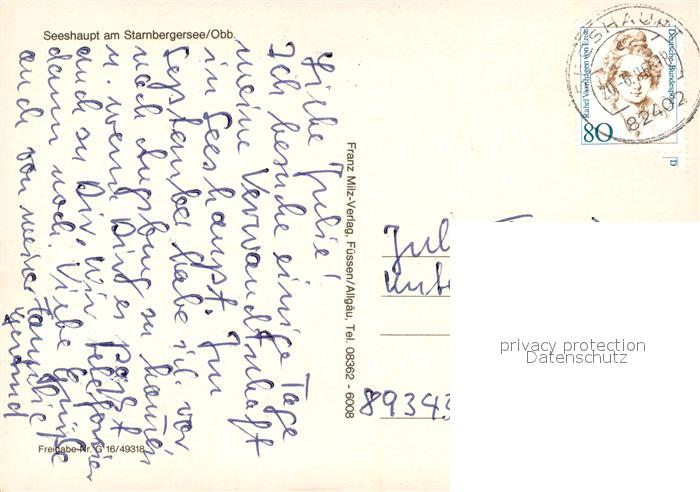 Seeshaupt am Starnbergersee/Obb.
Liebe Julie!
Ich besuche einige Tage
meine Verwandtschaft
in Seeshaupt. Im
September habe ich vor
nach Augsburg zu kommen
u. wenn Dirs paßt
auch zu Dir. Wir telefonieren
dann noch. Liebe Grüße
auch von meiner Familie
Freigabe-Nr. G 16/49318
Franz Milz-Verlag, Füssen/Allgäu, Tel. 08362 - 6008
SEESHAUPT
82402
Rahel Varnhagen von Ense
Deutsche Bundespost
80
D
Jul
Unte
8934
privacy protection
Datenschutz